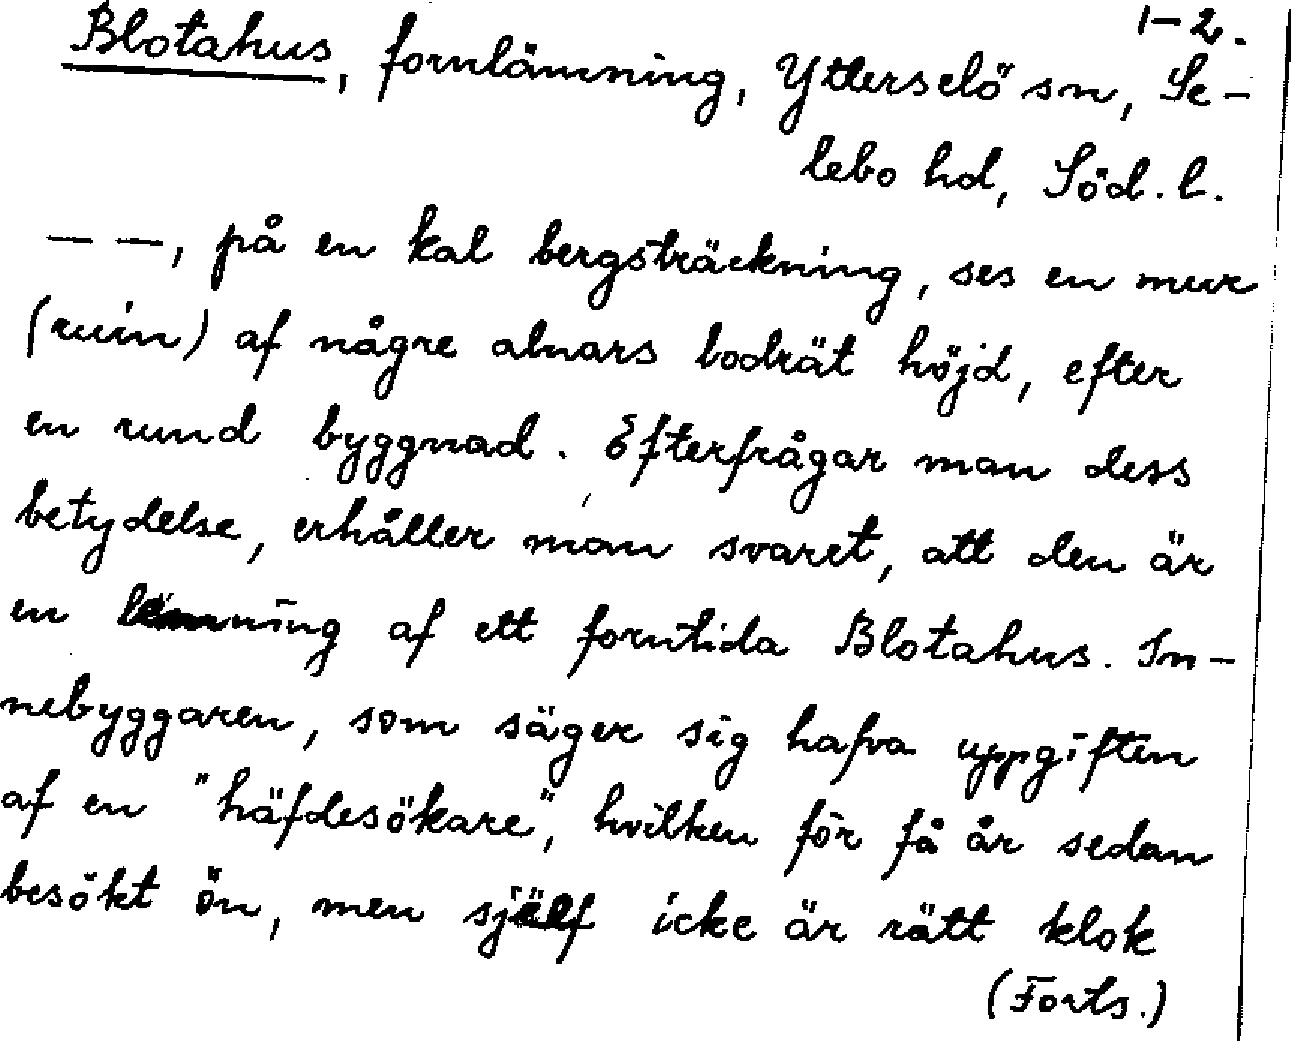 1-2.
Blotahus, fornlämning, Ytterselö sn, Se-
lebo hd, Söd. l.
— —, på en kal bergsträckning, ses en mur
(ruin) af någre alnars lodrät höjd, efter
en rund byggnad. Efterfrågar man dess
betydelse, erhåller man svaret, att den är
en lämning af ett forntida Blotahus. In-
nebyggaren, som säger sig hafva uppgiften
af en "häfdesökare", hvilken för få år sedan
besökt ön, men själf icke är rätt klok
(Forts.)